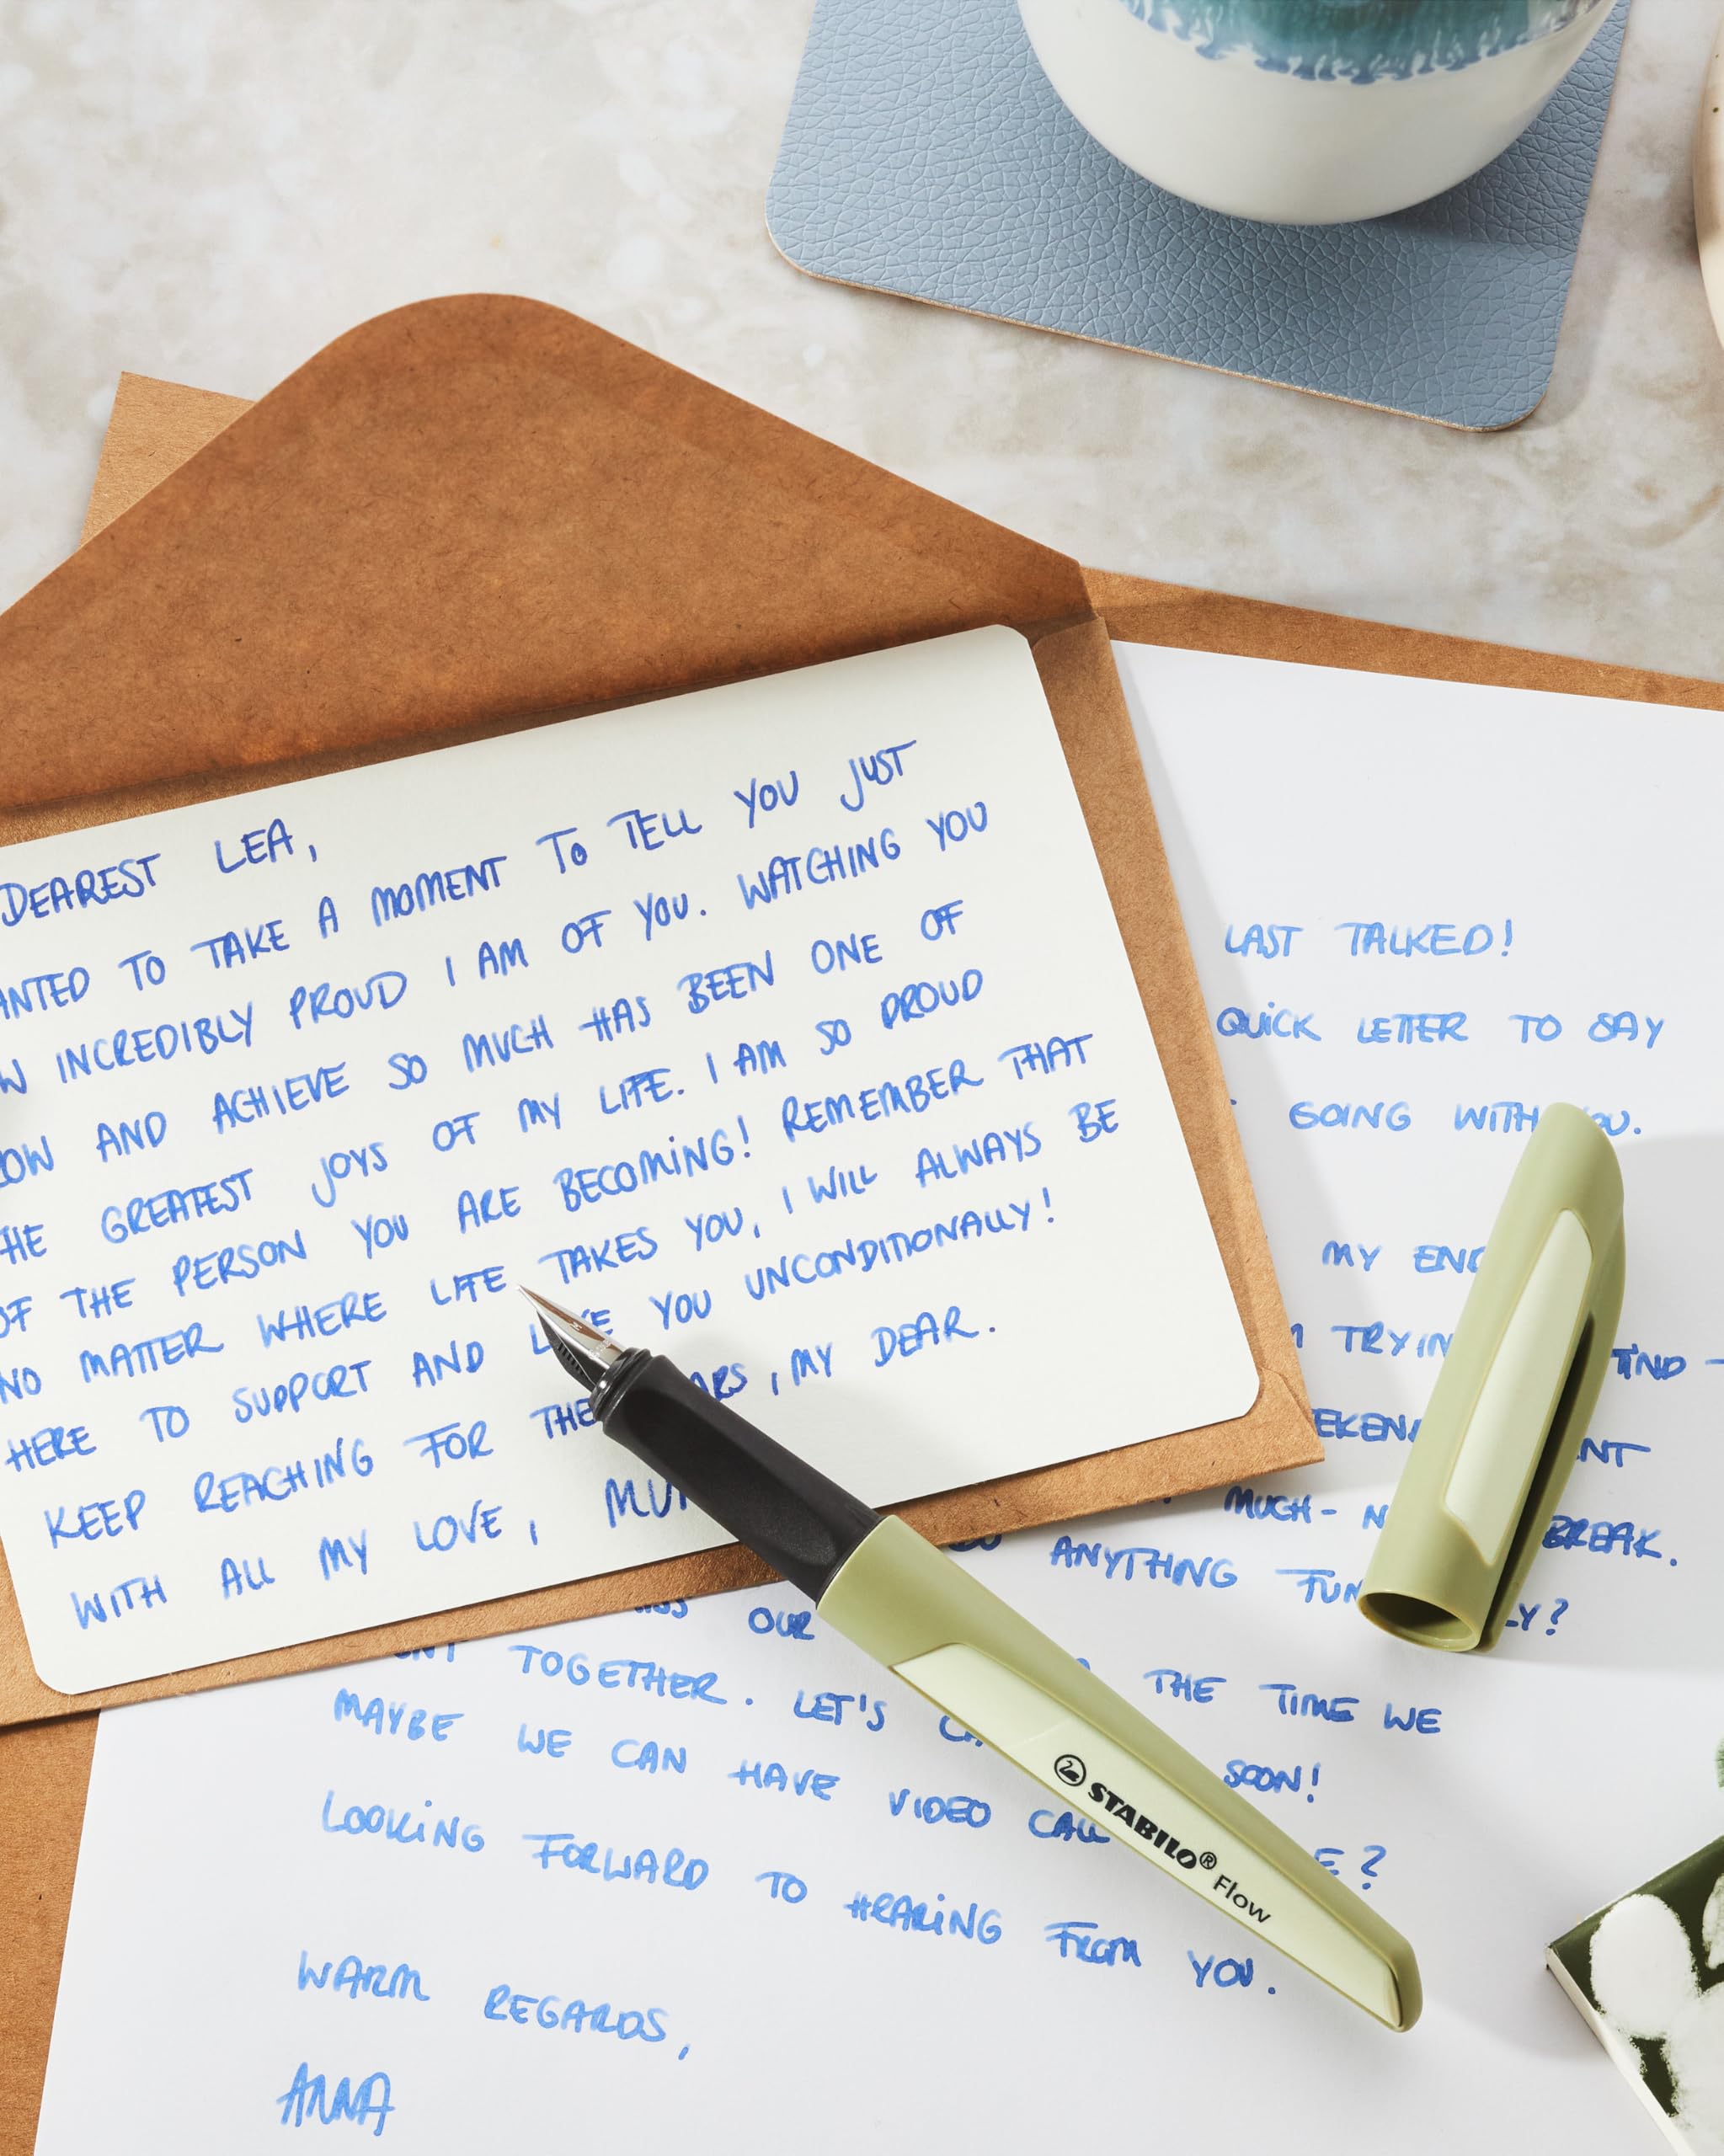 DEAREST LEA,
ANTED TO TAKE A MOMENT TO TELL YOU JUST
W INCREDIBLY PROUD I AM OF YOU. WATCHING YOU
OW AND ACHIEVE SO MUCH HAS BEEN ONE OF
HE GREATEST JOYS OF MY LIFE. I AM SO PROUD
OF THE PERSON YOU ARE BECOMING! REMEMBER THAT
NO MATTER WHERE LIFE TAKES YOU, I WILL ALWAYS BE
HERE TO SUPPORT AND L E YOU UNCONDITIONALLY!
KEEP REACHING FOR THE ARS, MY DEAR.
WITH ALL MY LOVE, MU
LAST TALKED!
QUICK LETTER TO SAY
GOING WITH OU.
MY END
TRYIN IND
EKEN NT
MUCH- N BREAK.
ANYTHING FUN LY?
OUR THE TIME WE
NT TOGETHER. LET'S C SOON!
MAYBE WE CAN HAVE VIDEO CALL E?
LOOKING FORWARD TO HEARING FROM YOU.
WARM REGARDS,
ANNA
STABILO® Flow